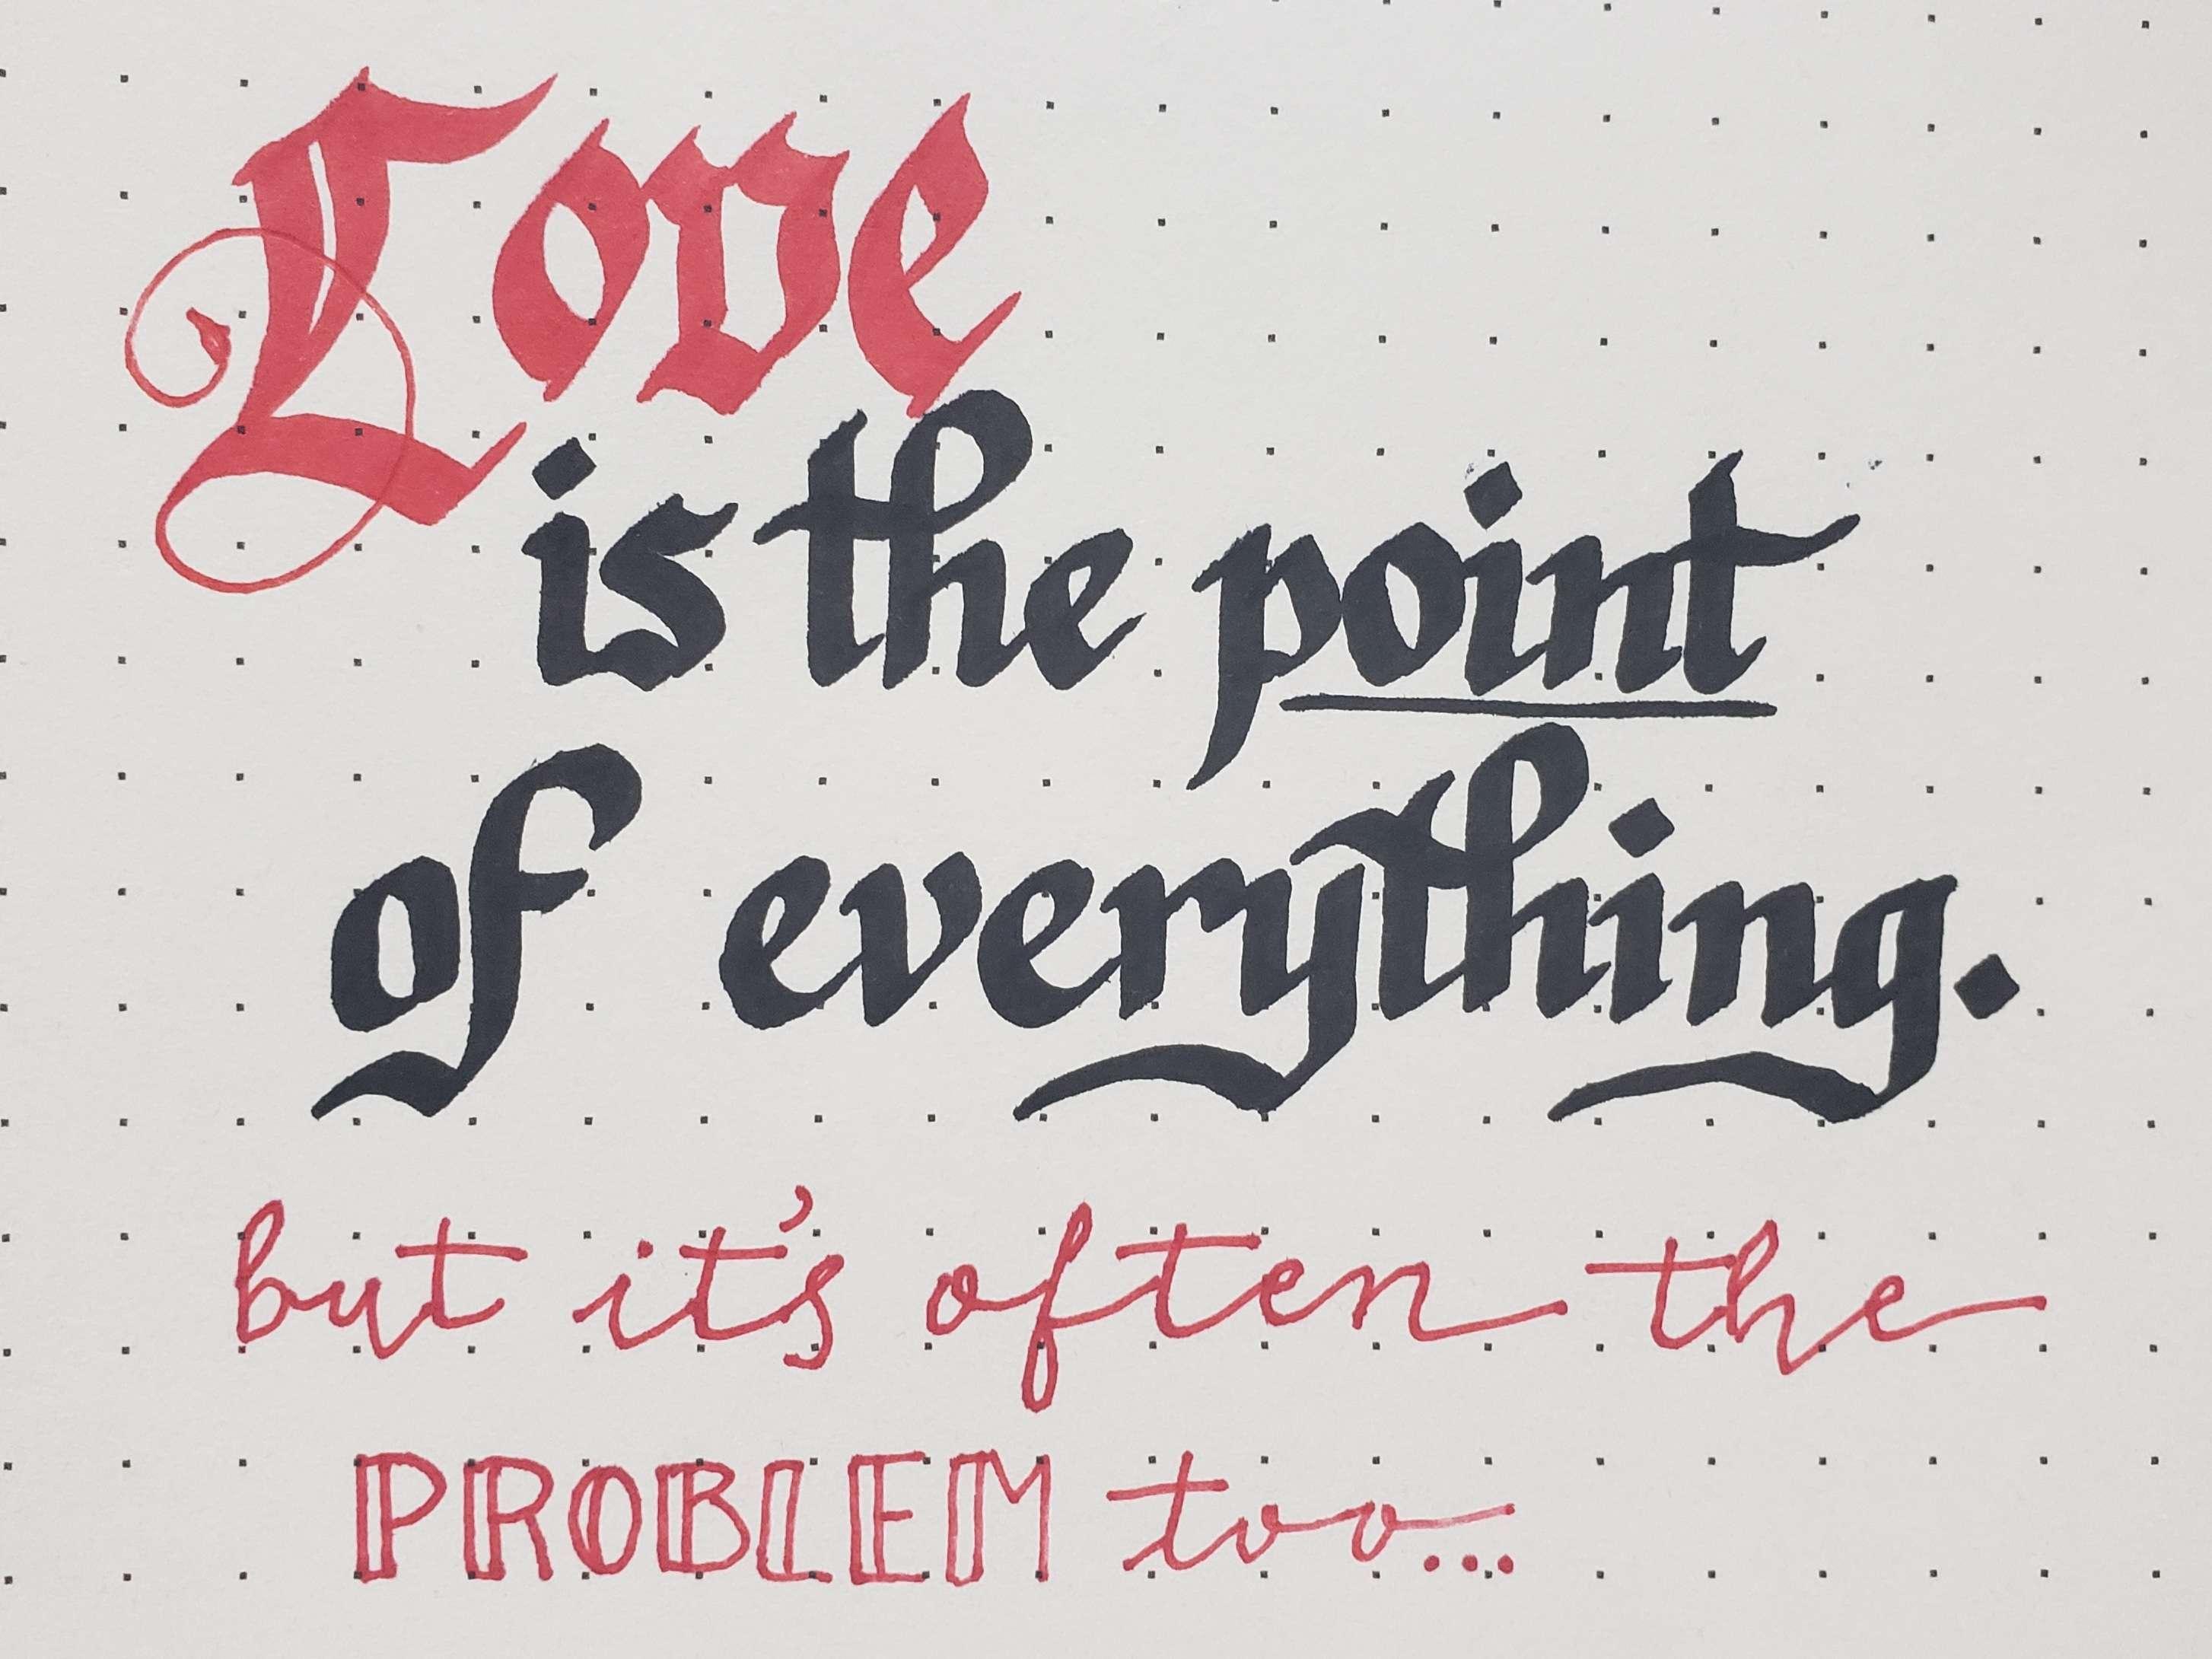 Love
is the point
of everything.
but it's often the
PROBLEM too...